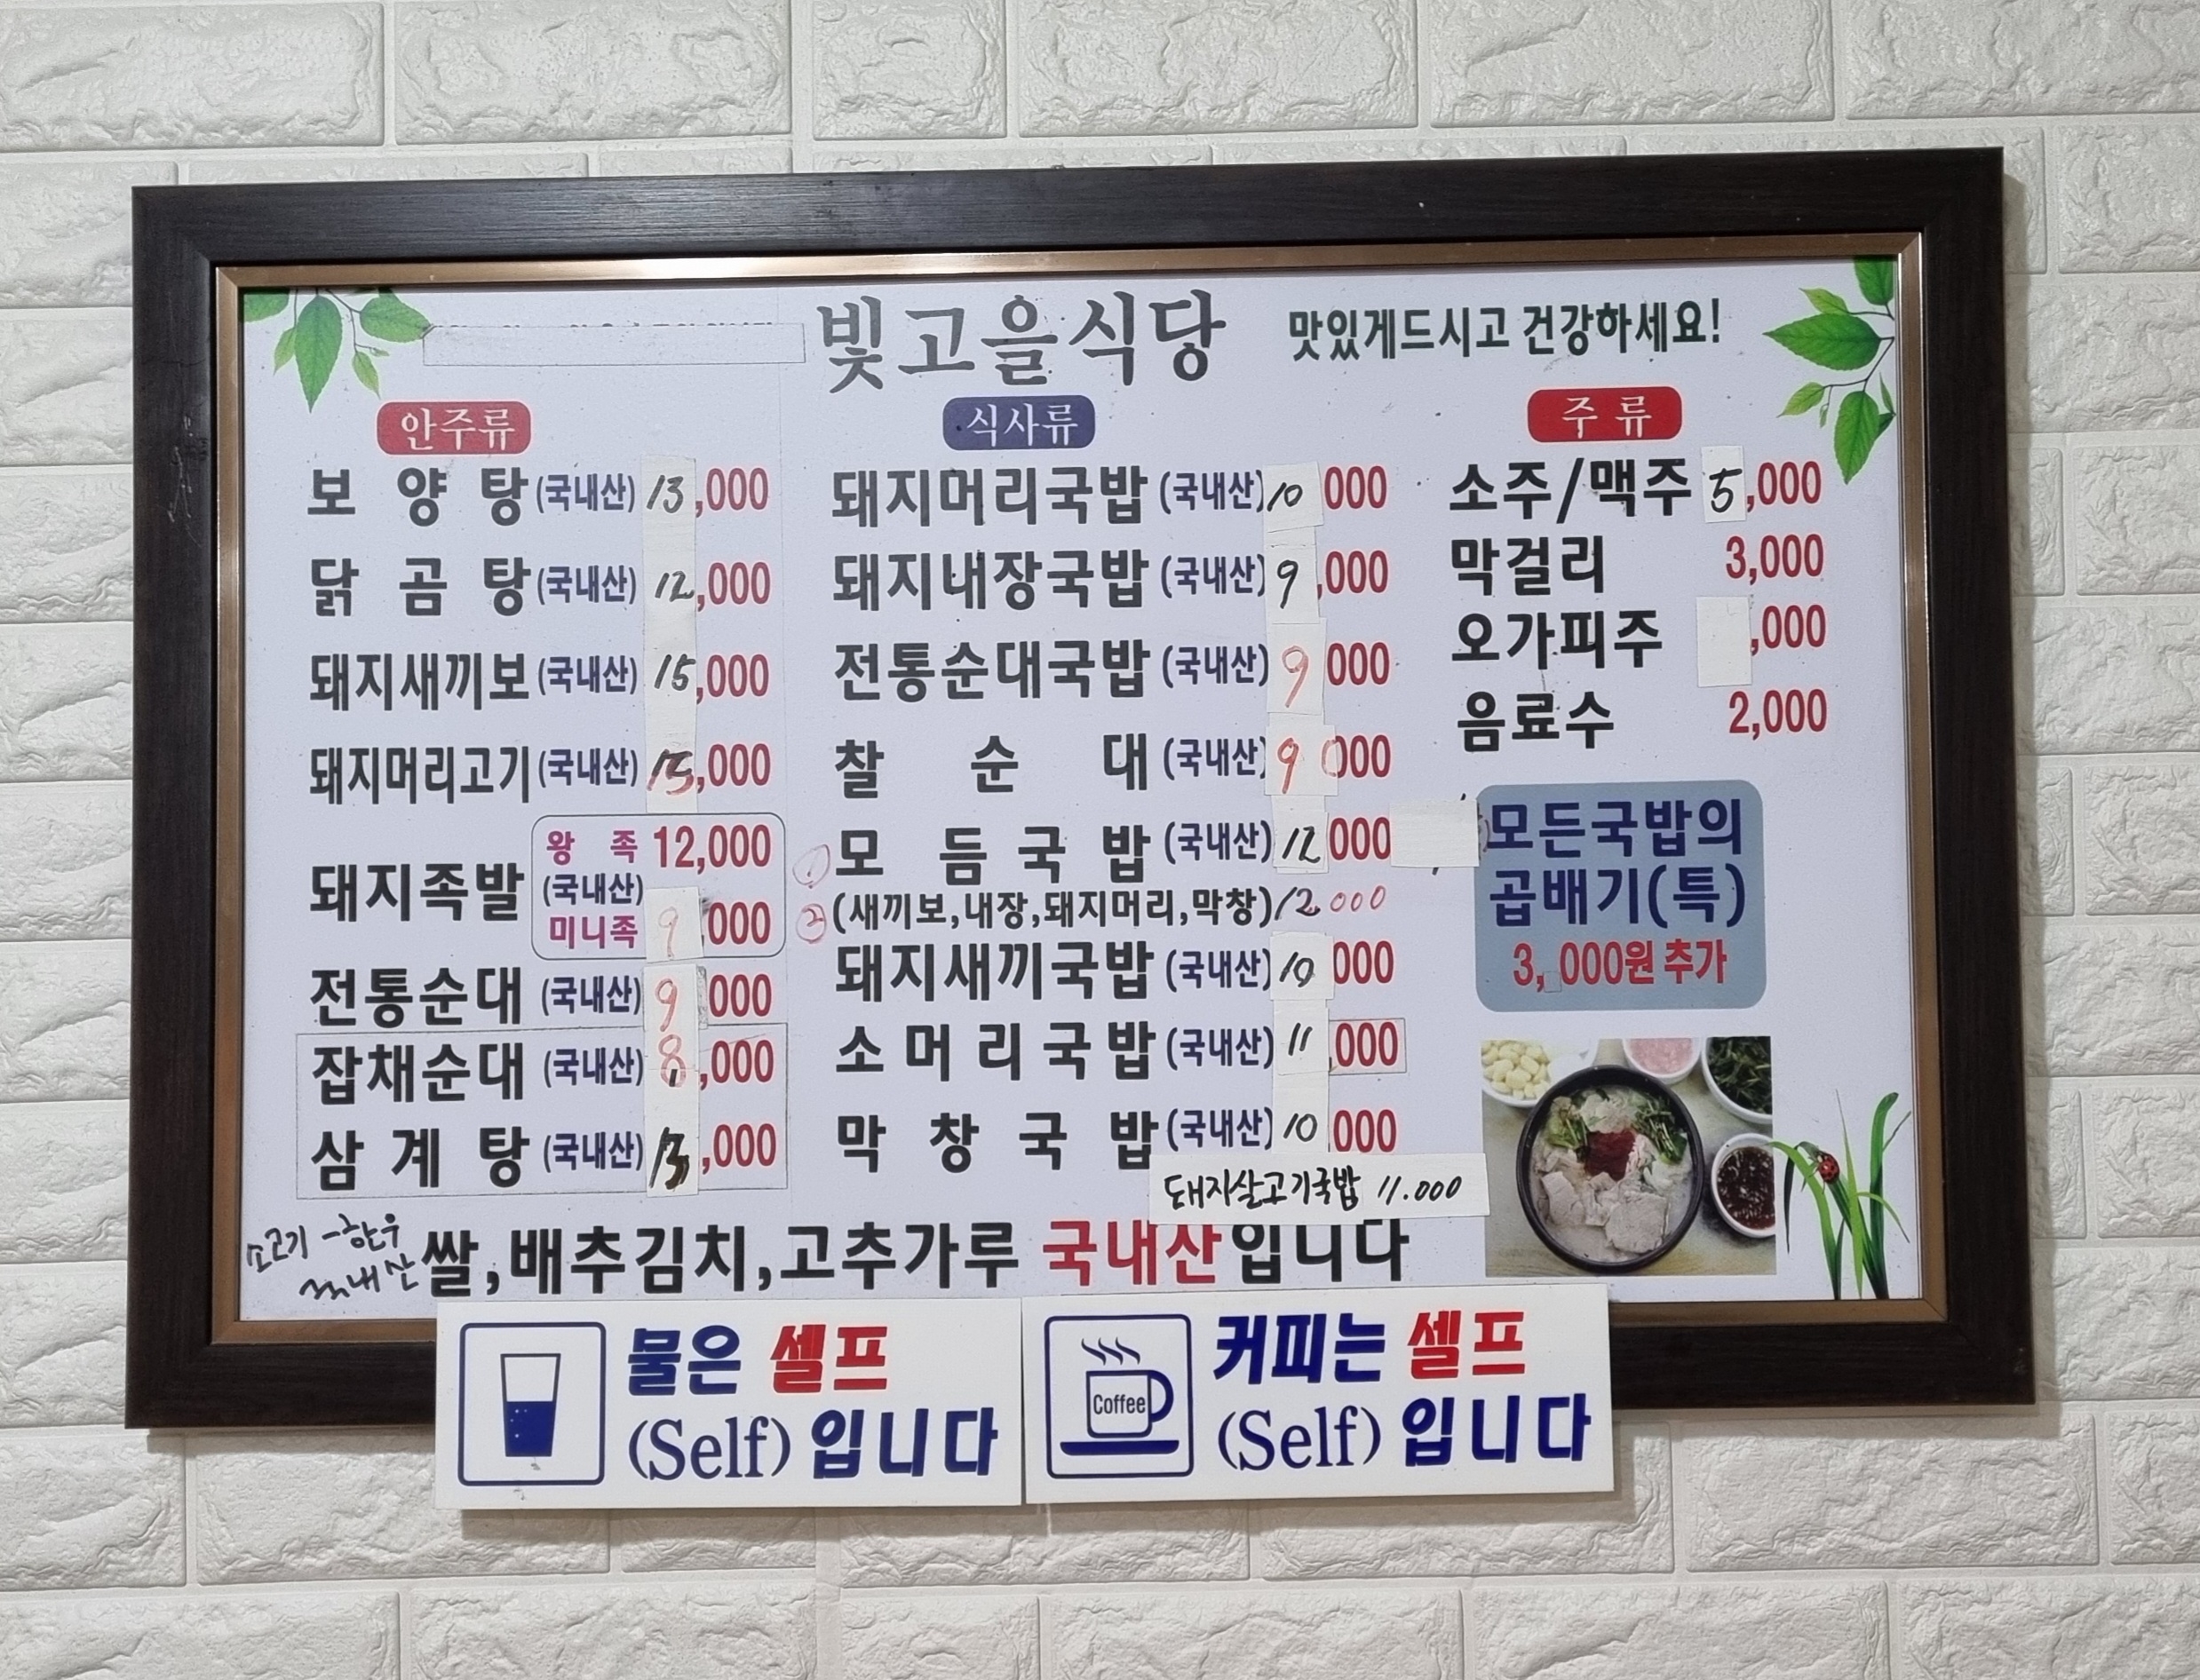 빛고을식당 맛있게드시고 건강하세요!
안주류
보양탕(국내산) 13,000
닭곰탕(국내산) 12,000
돼지새끼보(국내산) 15,000
돼지머리고기(국내산) 15,000
돼지족발 (국내산)
왕족 12,000
미니족 9,000
전통순대 (국내산) 9,000
잡채순대 (국내산) 8,000
삼계탕 (국내산) 13,000
식사류
돼지머리국밥 (국내산) 10,000
돼지내장국밥 (국내산) 9,000
전통순대국밥 (국내산) 9,000
찰순대 (국내산) 9,000
① 모듬국밥 (국내산) 12,000
② (새끼보,내장,돼지머리,막창) 12,000
돼지새끼국밥 (국내산) 10,000
소머리국밥 (국내산) 11,000
막창국밥 (국내산) 10,000
돼지살고기국밥 11.000
주류
소주/맥주 5,000
막걸리 3,000
오가피주 ,000
음료수 2,000
모든국밥의
곱배기(특)
3,000원 추가
소고기 - 한우
국내산
쌀,배추김치,고추가루 국내산입니다
물은 셀프
(Self) 입니다
Coffee
커피는 셀프
(Self) 입니다